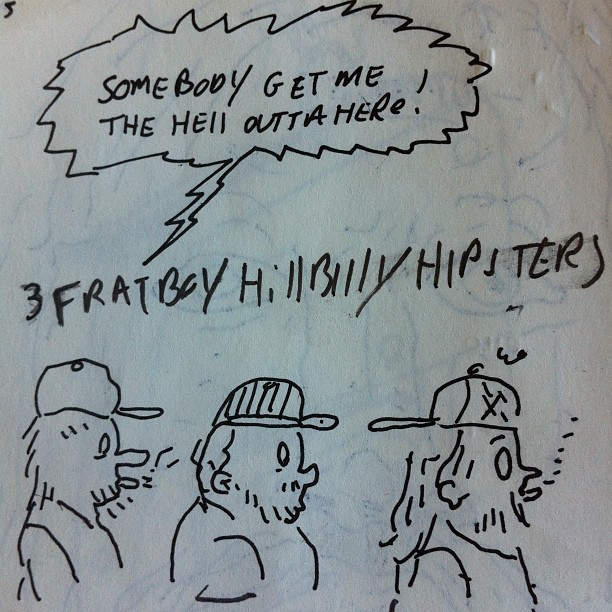 SOMEBODY GET ME
THE HEll OUTTA HERe!
3 FRATBOY HillBIlly HIPSTERS